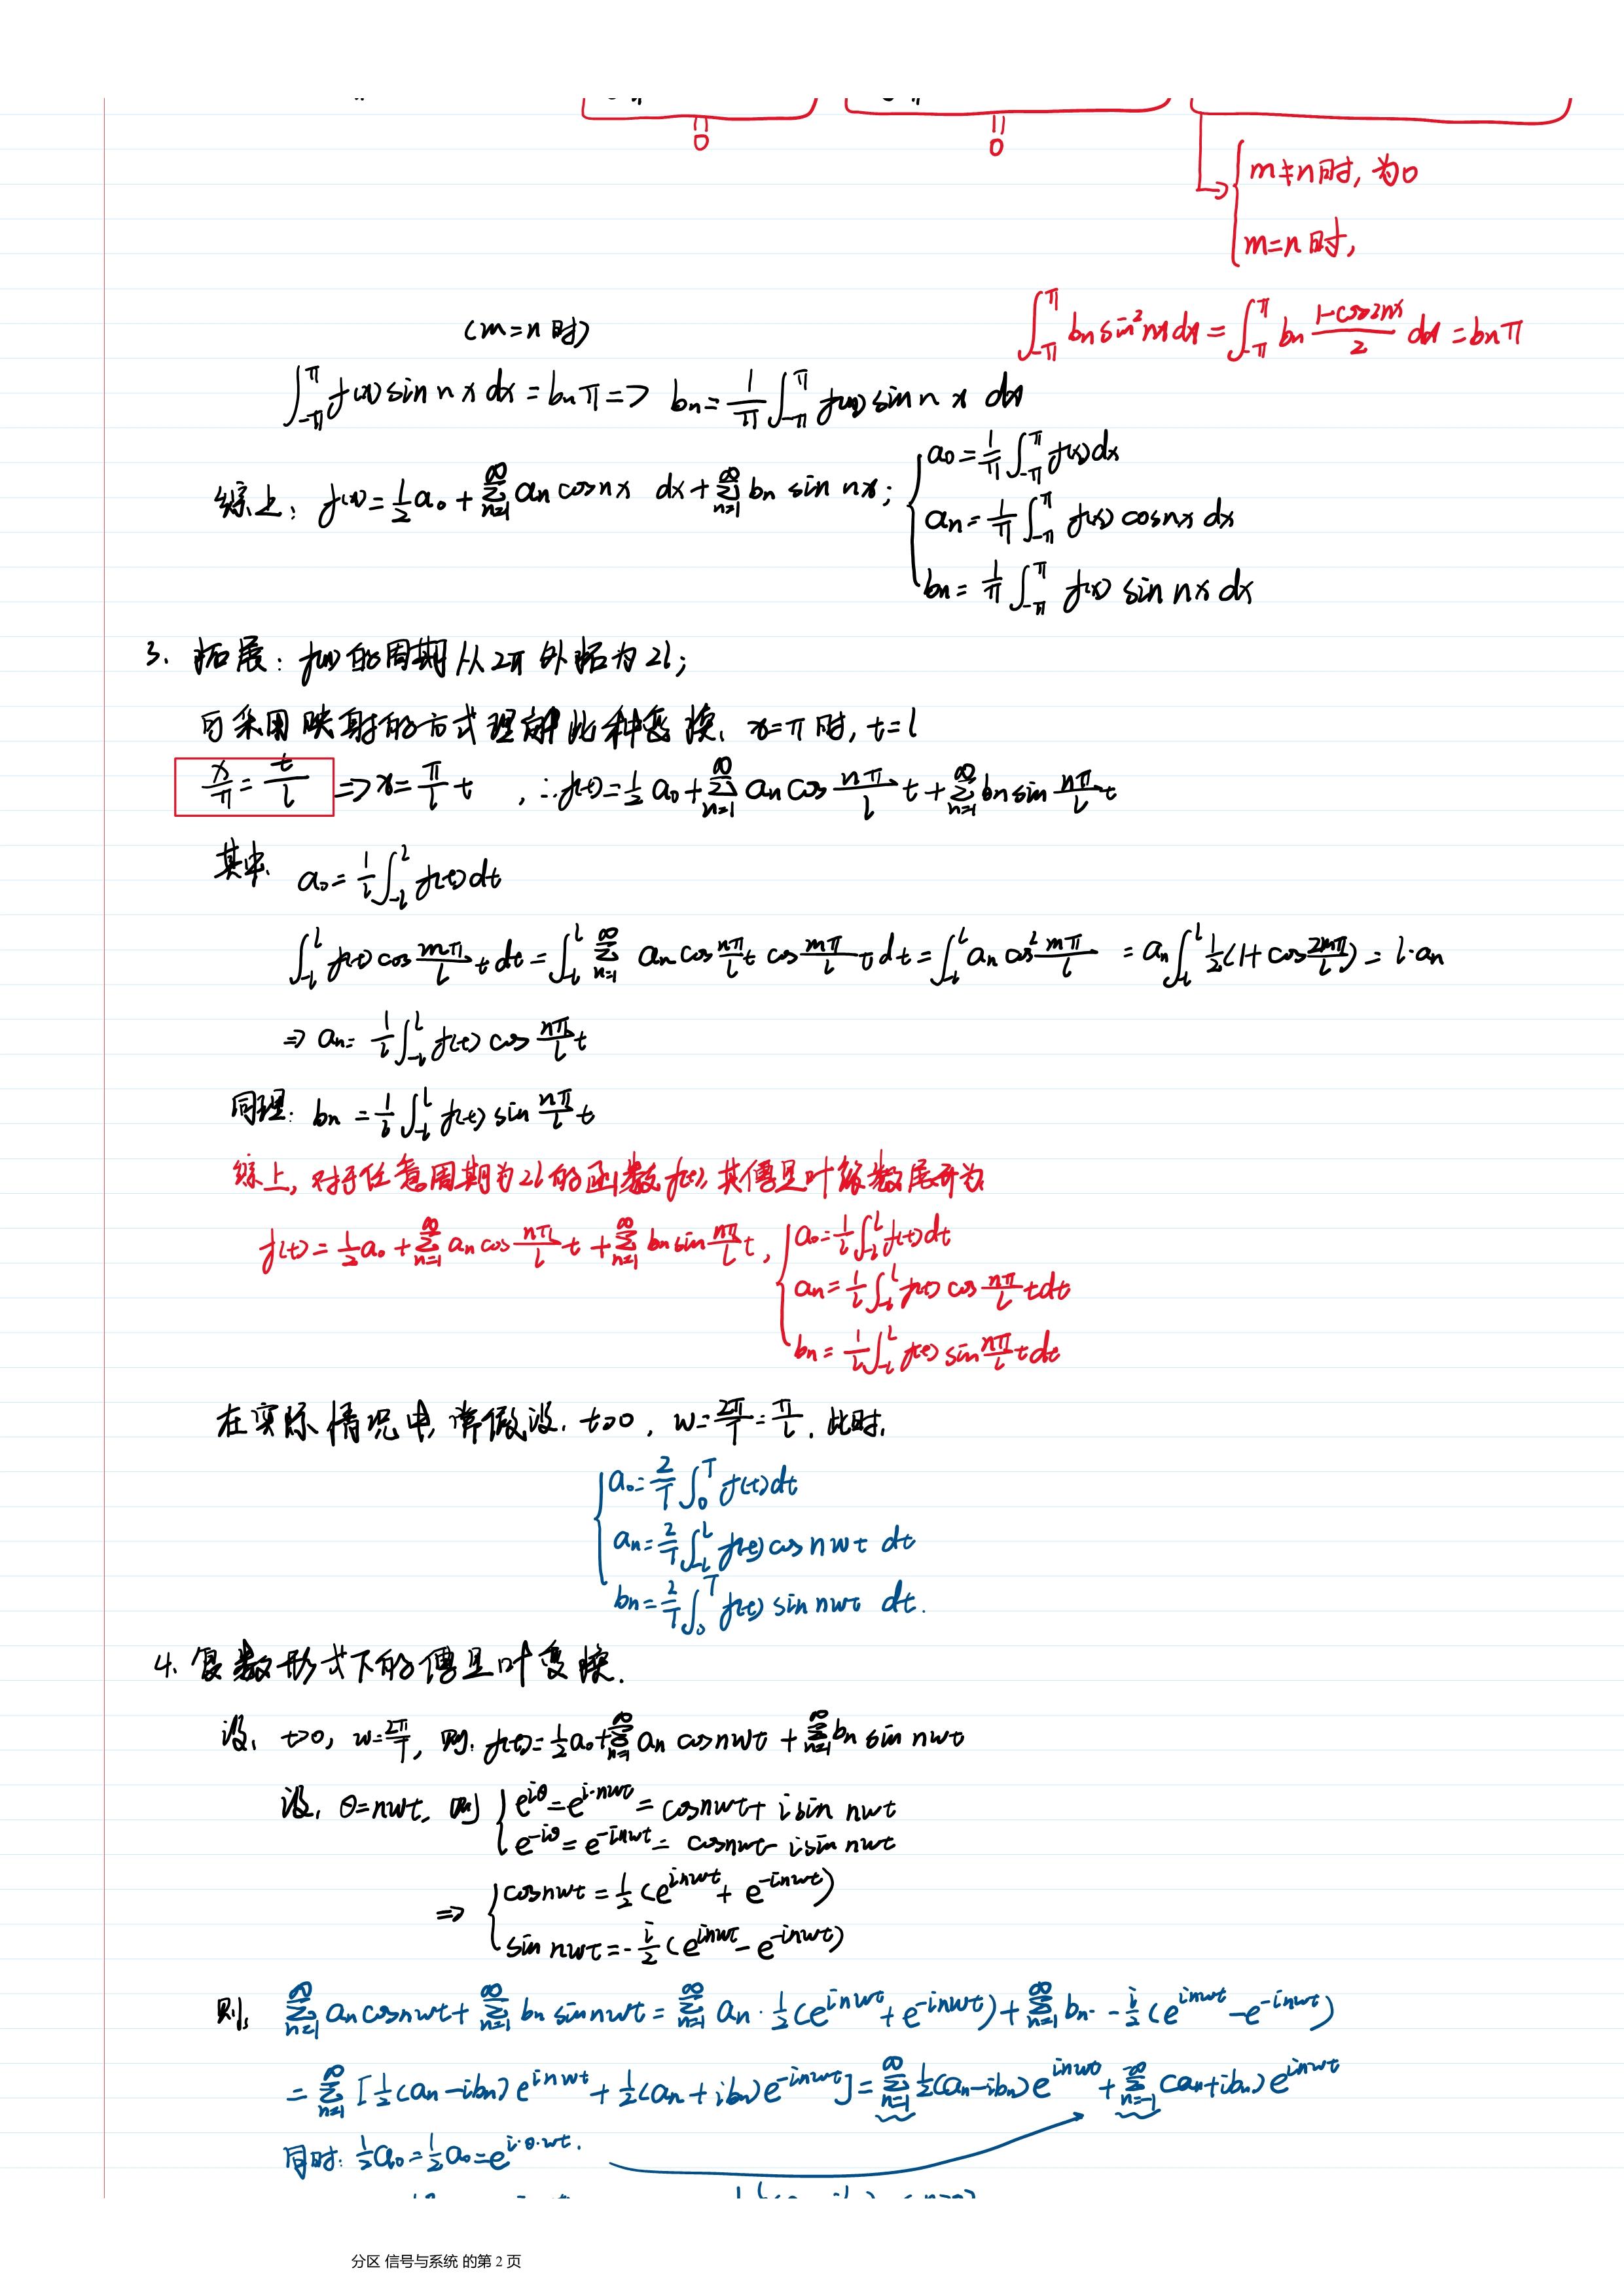 0 0
{ m≠n时, 为0
m=n时,
∫_{-π}^{π} bn sin²nx dx = ∫_{-π}^{π} bn (1-cos2nx)/2 dx = bnπ
(m=n时)
∫_{-π}^{π} f(x) sin n x dx = bnπ => bn = 1/π ∫_{-π}^{π} f(x) sin n x dx
综上: f(x) = 1/2 a0 + ∑_{n=1}^{∞} an cos nx dx + ∑_{n=1}^{∞} bn sin nx; { a0 = 1/π ∫_{-π}^{π} f(x) dx
an = 1/π ∫_{-π}^{π} f(x) cos nx dx
bn = 1/π ∫_{-π}^{π} f(x) sin nx dx
3. 拓展: f(x) 的周期从 2π 外拓为 2l;
可采用映射的方式理解此种变换, x=π 时, t=l
x/π = t/l => x = π/l t , ∴ f(t) = 1/2 a0 + ∑_{n=1}^{∞} an cos nπ/l t + ∑_{n=1}^{∞} bn sin nπ/l t
其中, a0 = 1/l ∫_{-l}^{l} f(t) dt
∫_{-l}^{l} f(t) cos mπ/l t dt = ∫_{-l}^{l} ∑_{n=1}^{∞} an cos nπ/l t cos mπ/l t dt = ∫_{-l}^{l} an cos² mπ/l = an ∫_{-l}^{l} 1/2 (1+ cos 2mπ/l) = l·an
=> an = 1/l ∫_{-l}^{l} f(t) cos nπ/l t
同理: bn = 1/l ∫_{-l}^{l} f(t) sin nπ/l t
综上, 对于任意周期为2l的函数f(t), 其傅里叶级数展开为
f(t) = 1/2 a0 + ∑_{n=1}^{∞} an cos nπ/l t + ∑_{n=1}^{∞} bn sin nπ/l t, { a0 = 1/l ∫_{-l}^{l} f(t) dt
an = 1/l ∫_{-l}^{l} f(t) cos nπ/l t dt
bn = 1/l ∫_{-l}^{l} f(t) sin nπ/l t dt
在实际情况中, 常做设, t>0, w = 2π/T = π/l, 此时,
{ a0 = 2/T ∫_{0}^{T} f(t) dt
an = 2/T ∫_{-l}^{l} f(t) cos nwt dt
bn = 2/T ∫_{0}^{T} f(t) sin nwt dt.
4. 复数形式下的傅里叶变换.
设, t>0, w = 2π/T, 则, f(t) = 1/2 a0 + ∑_{n=1}^{∞} an cos nwt + ∑_{n=1}^{∞} bn sin nwt
设, θ=nwt, 则 { e^{iθ} = e^{i·nwt} = cos nwt + i sin nwt
e^{-iθ} = e^{-inwt} = cos nwt - i sin nwt
=> { cos nwt = 1/2 (e^{inwt} + e^{-inwt})
sin nwt = - i/2 (e^{inwt} - e^{-inwt})
则, ∑_{n=1}^{∞} an cos nwt + ∑_{n=1}^{∞} bn sin nwt = ∑_{n=1}^{∞} an · 1/2 (e^{inwt} + e^{-inwt}) + ∑_{n=1}^{∞} bn · - i/2 (e^{inwt} - e^{-inwt})
= ∑_{n=1}^{∞} [1/2 (an - ibn) e^{inwt} + 1/2 (an + ibn) e^{-inwt}] = ∑_{n=1}^{∞} 1/2 (an - ibn) e^{inwt} + ∑_{n=-1}^{-∞} (an + ibn) e^{inwt}
同时: 1/2 a0 = 1/2 a0 = e^{i·0·wt}.
分区 信号与系统 的第 2 页